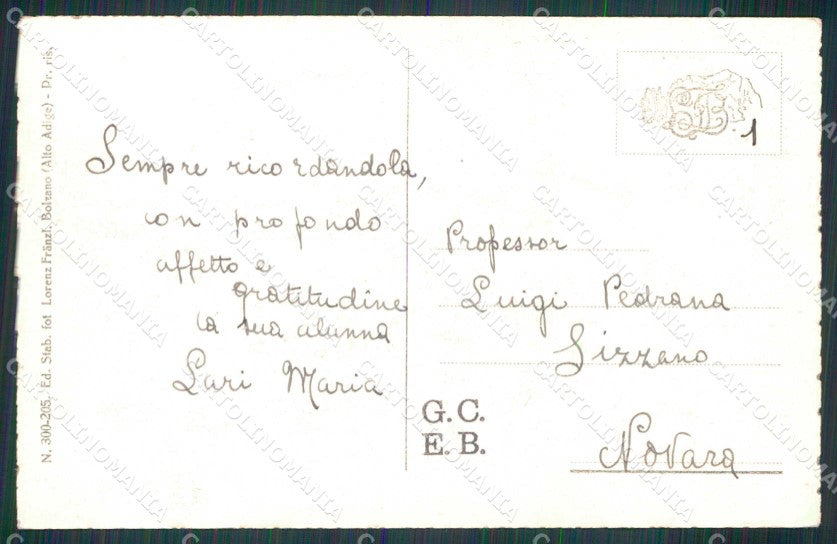 N. 300-205. Ed. Stab. fot Lorenz Fränzl, Bolzano (Alto Adige) - Pr. ris.
Sempre ricordandola,
con profondo
affetto e
gratitudine
la sua alunna
Lari Maria
1
Professor
Luigi Pedrana
Sizzano
Novara
G. C.
E. B.
CARTOLINOMANIA